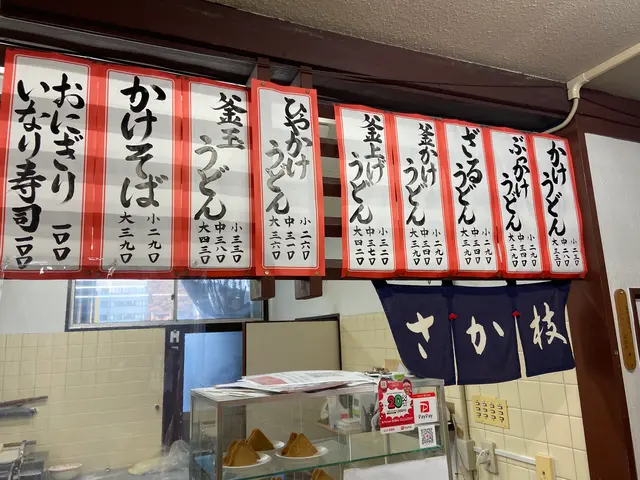 かけうどん
小二三〇
中二八〇
大三三〇
ぶっかけうどん
小二九〇
中三四〇
大三九〇
ざるうどん
小二九〇
中三四〇
大三九〇
釜かけうどん
小二九〇
中三四〇
大三九〇
釜上げうどん
小三二〇
中三七〇
大四二〇
ひやかけうどん
小二六〇
中三一〇
大三六〇
釜玉うどん
小三三〇
中三八〇
大四三〇
かけそば
小二九〇
大三九〇
おにぎり 一〇〇
いなり寿司 一〇〇
さか枝
20%
PayPay